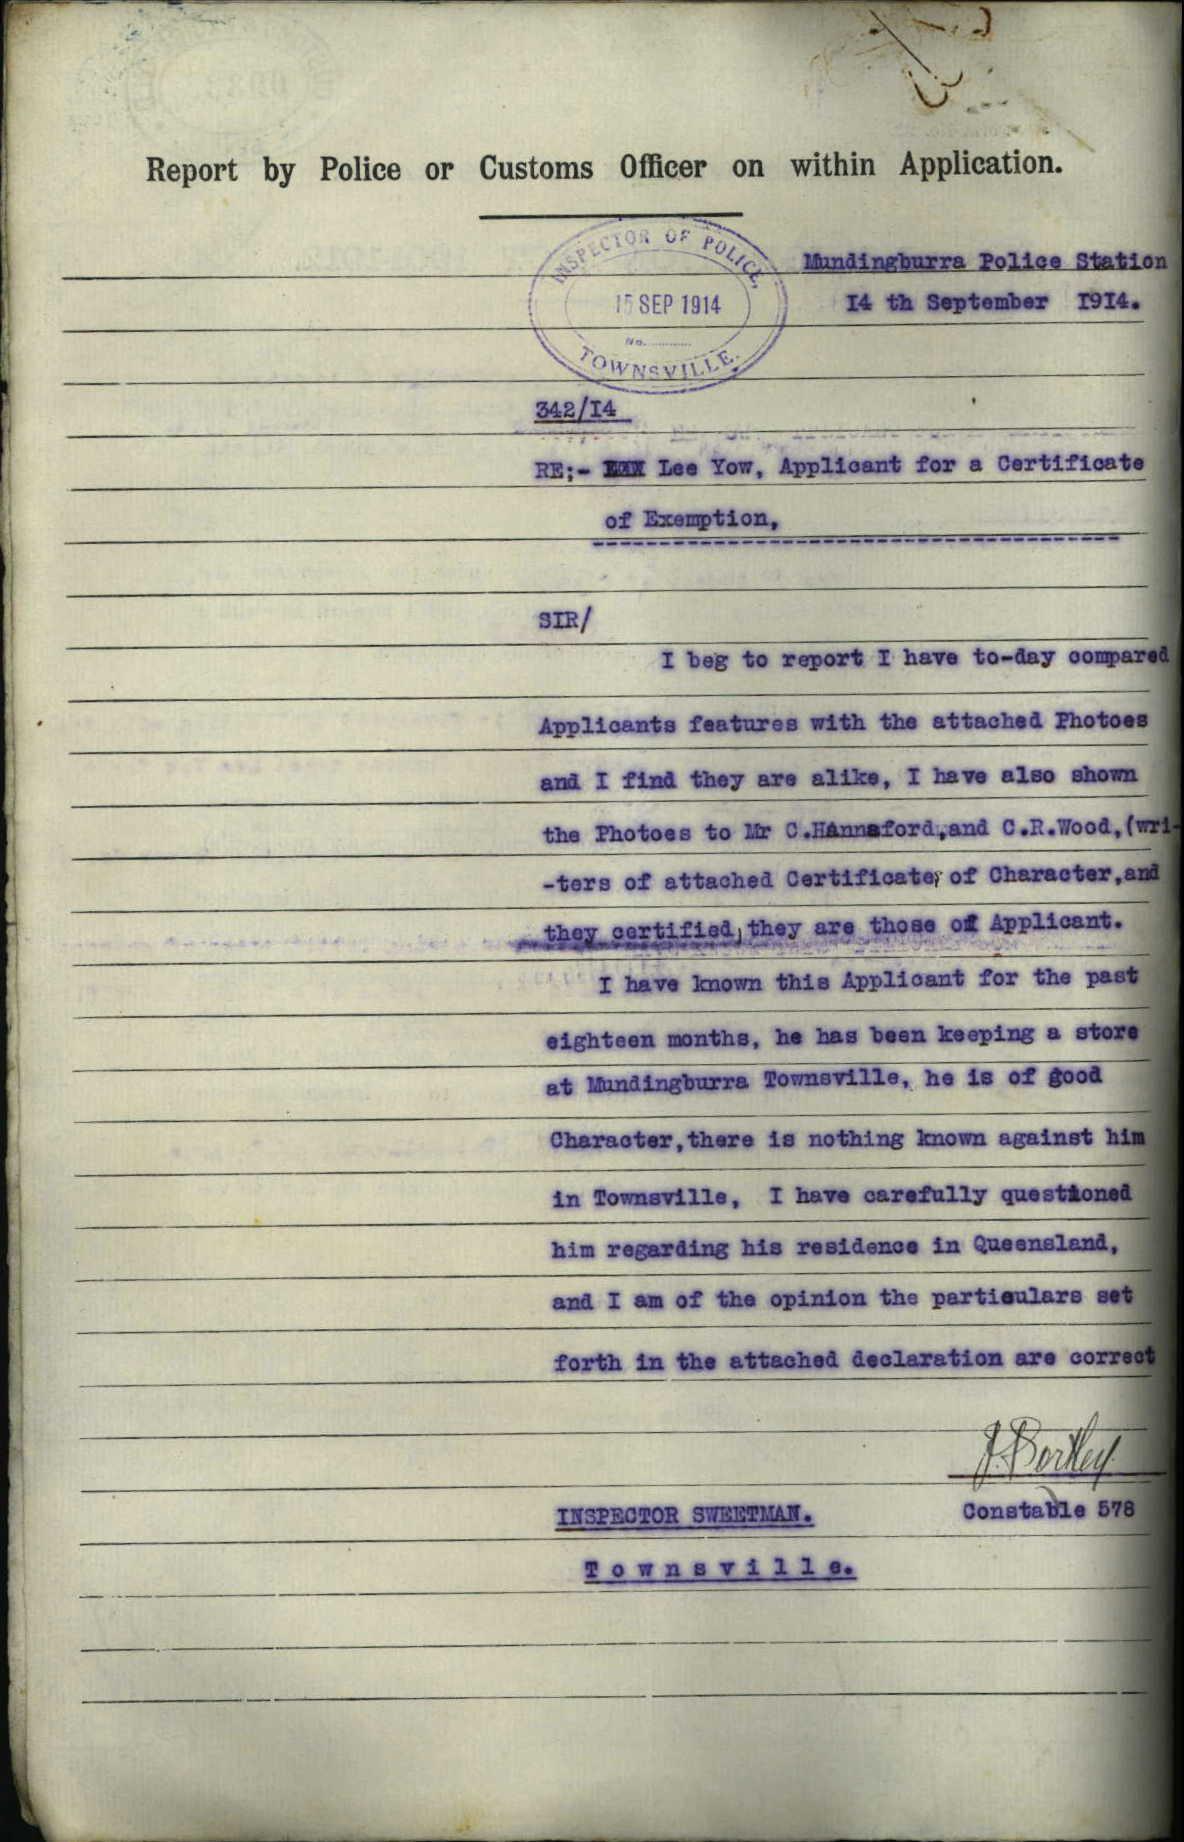 Report by Police or Customs Officer on within Application.
INSPECTOR OF POLICE,
15 SEP 1914
No.
TOWNSVILLE.
Mundingburra Police Station
14 th September 1914.
342/14
RE;- Lee Yow, Applicant for a Certificate
of Exemption,
SIR/
I beg to report I have to-day compared
Applicants features with the attached Photoes
and I find they are alike, I have also shown
the Photoes to Mr C.HAnnaford,and C.R.Wood,(wri-
-ters of attached Certificates of Character,and
they certified,they are those of Applicant.
I have known this Applicant for the past
eighteen months, he has been keeping a store
at Mundingburra Townsville, he is of good
Character,there is nothing known against him
in Townsville, I have carefully questioned
him regarding his residence in Queensland,
and I am of the opinion the particulars set
forth in the attached declaration are correct
J. Bortley
INSPECTOR SWEETMAN. Constable 578
Townsville.